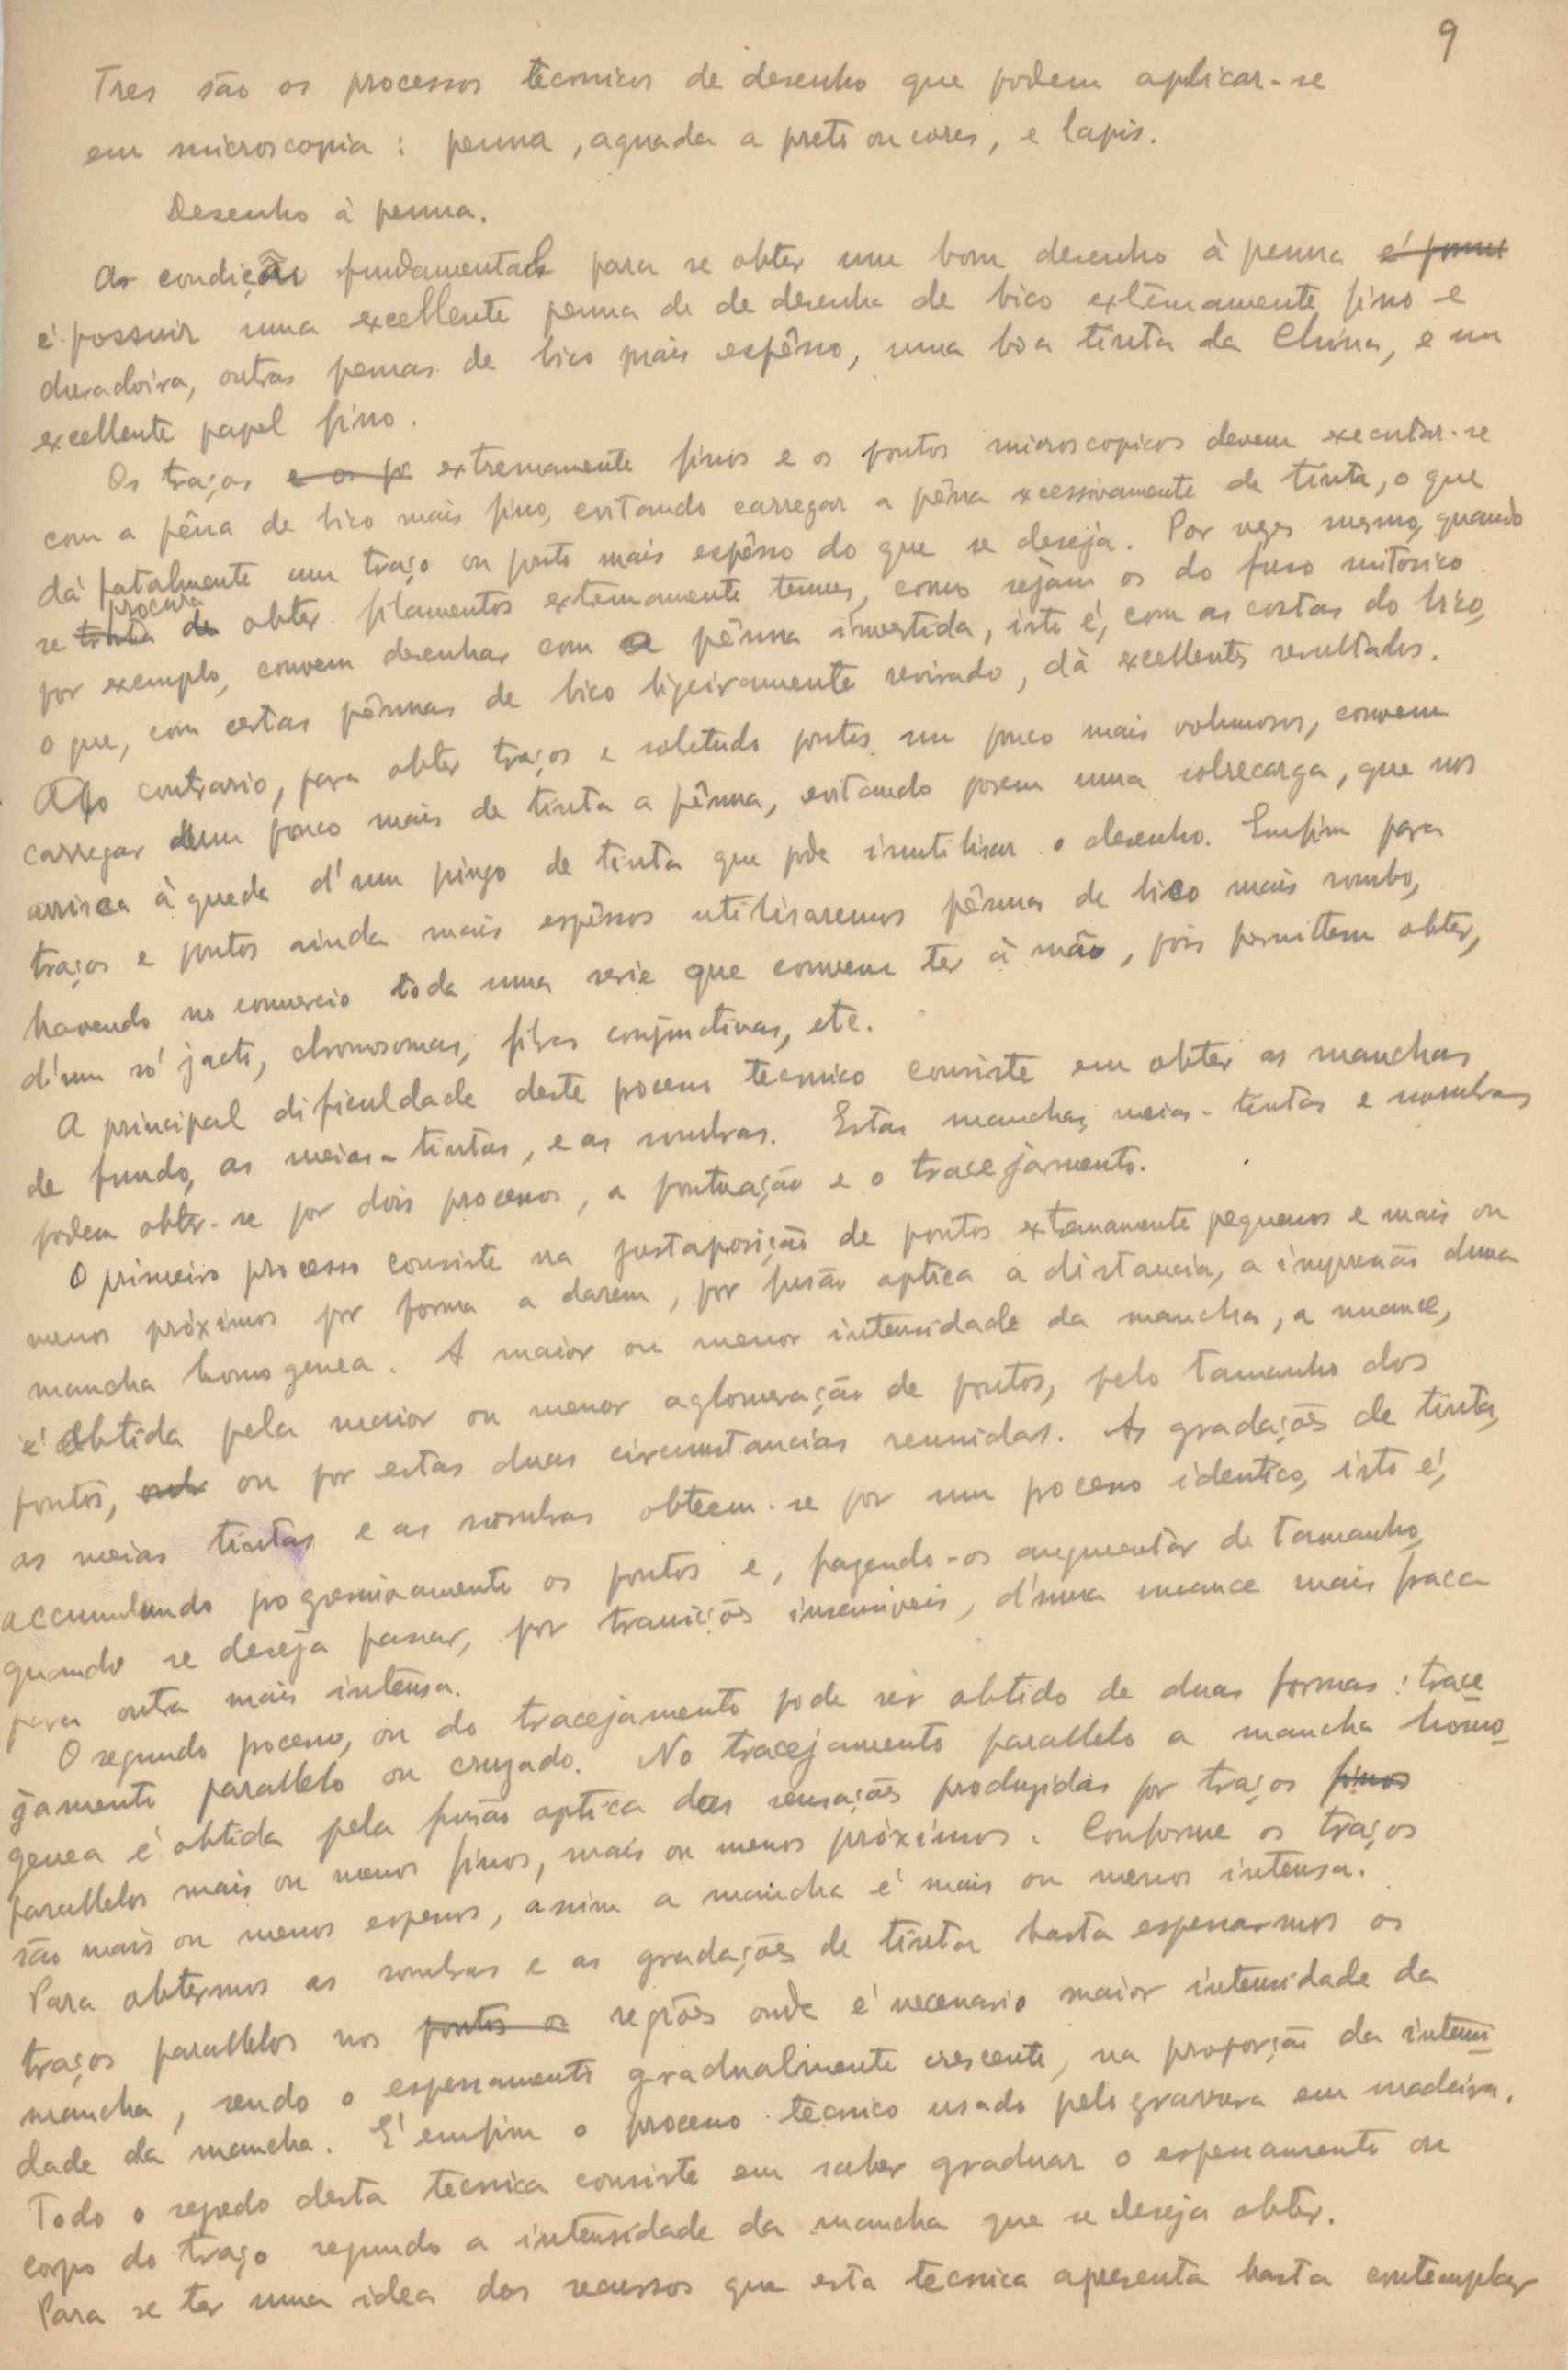 9
Tres são os processos tecnicos de desenho que podem aplicar-se
em microscopia: penna, aguada a preto ou cores, e lapis.
Desenho à penna.
As condições fundamentaes para se obter um bom desenho à penna é
é possuir uma excellente penna de de desenho de bico extremamente fino e
duradoira, outras pennas de bico mais espêsso, uma boa tinta da China, e um
excellente papel fino.
Os traços e os po extremamente finos e os pontos microscopicos devem executar-se
com a pêna de bico mais fino, evitando carregar a pêna excessivamente de tinta, o que
dá fatalmente um traço ou ponto mais espêsso do que se deseja. Por vezes mesmo, quando
procura
se trata de obter filamentos extremamente tenues, como sejam os do fuso mitosico
por exemplo, convem desenhar com a pênna invertida, isto é, com as costas do bico,
o que, com certas pênnas de bico ligeiramente revirado, dá excellentes resultados.
Ao contrario, para obter traços e sobetudo pontos um pouco mais volumosos, convem
carregar um pouco mais de tinta a pênna, evitando porem uma sobrecarga, que nos
arrisca à queda d'um pingo de tinta que pode inutilisar o desenho. Emfim para
traços e pontos ainda mais espêssos utilisaremos pênnas de bico mais rombo,
havendo no comercio toda uma serie que convem ter à mão, pois permittem obter,
d'um só jacto, chromosomas, fibras conjunctivas, etc.
A principal dificuldade deste processo tecnico consiste em obter as manchas
de fundo, as meias-tintas, e as sombras. Estas manchas, meias-tintas e sombras
podem obter-se por dois processos, a pontuação e o tracejamento.
O primeiro processo consiste na justaposição de pontos extremamente pequenos e mais ou
menos próximos por forma a darem, por fusão optica a distancia, a impressão duma
mancha homogenea. A maior ou menor intensidade da mancha, a nuance,
é obtida pela maior ou menor aglomeração de pontos, pelo tamanho dos
pontos, ou por estas duas circumstancias reunidas. As gradações de tinta,
as meias tintas e as sombras obteem-se por um processo identico, isto é,
accumulando progressivamente os pontos e, fazendo-os augmentar de tamanho,
quando se deseja passar, por transições insensiveis, d'uma nuance mais fraca
para outra mais intensa.
O segundo processo, ou do tracejamento pode ser obtido de duas formas: trace
jamento parallelo ou cruzado. No tracejamento parallelo a mancha homo
genea é obtida pela fusão optica das sensações produzidas por traços finos
parallelos mais ou menos finos, mais ou menos próximos. Conforme os traços
são mais ou menos espessos, assim a mancha é mais ou menos intensa.
Para obtermos as sombras e as gradações de tinta basta espessarmos os
traços parallelos nos pontos os regiões onde é necessario maior intensidade da
mancha, sendo o espessamento gradualmente crescente, na proporção da intensi
dade da mancha. É emfim o processo tecnico usado pelo gravura em madeira.
Todo o segredo desta tecnica consiste em saber graduar o espessamento ou
corpo do traço segundo a intensidade da mancha que se deseja obter.
Para se ter uma idea dos recursos que esta tecnica apresenta basta contemplar